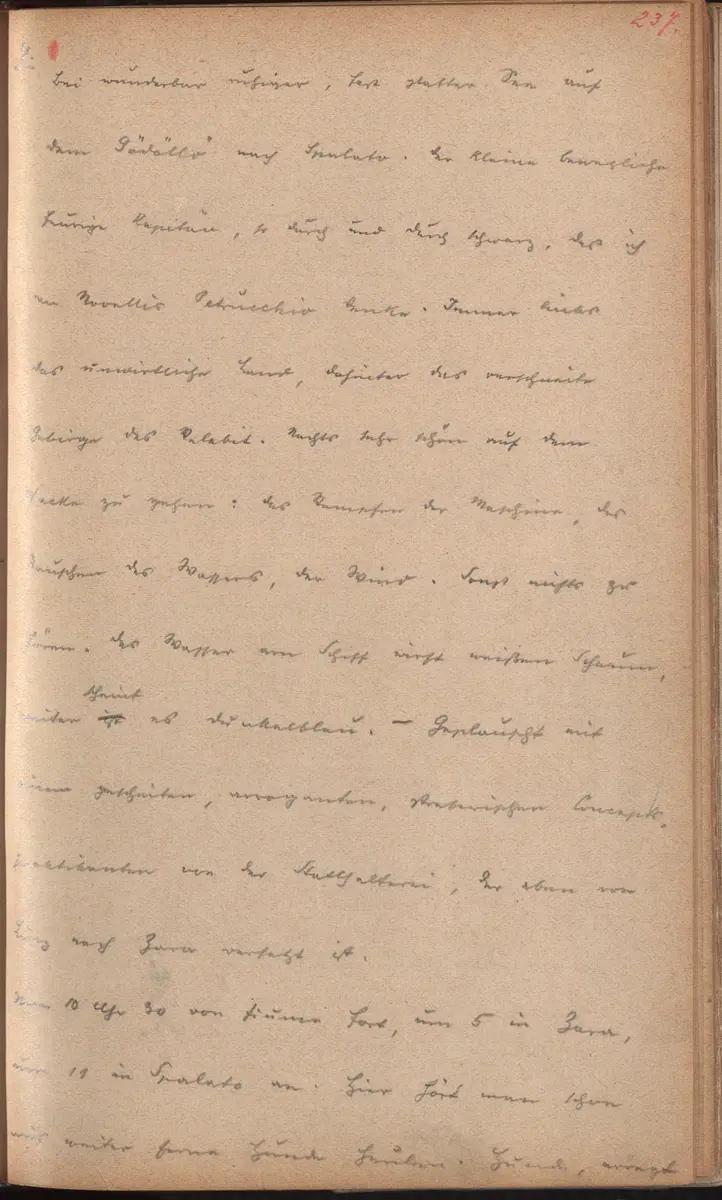 237.
2.
Bei wunderbar ruhiger, fast glatter See auf
dem „Gödöllö" nach Spalato. Der kleine bewegliche
feurige Kapitän, so durch und durch schwarz, daß ich
an Novellis Petrucchio denke. Immer links
das unwirtliche Land, dahinter das verschneite
Gebirge des Velebit. Nachts sehr schön auf dem
Decke zu gehen: das Stampfen der Maschine, das
Rauschen des Wassers, der Wind. Sonst nichts zu
hören. Das Wasser am Schiff wirft weißen Schaum,
scheint
weiter ist es dunkelblau. – Geplauscht mit
einem gescheiten, arroganten, streberischen Concepts-
praktikanten von der Statthalterei, der eben von
Linz nach Zara versetzt ist.
Um 10 Uhr 30 von Fiume fort, um 5 in Zara,
um 11 in Spalato an. Hier hört man schon
aus weiter Ferne Hunde heulen. Hunde, erregt